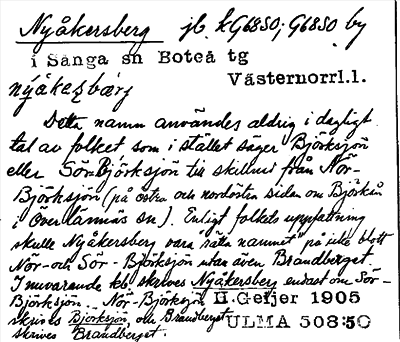 Nyåkersberg jb. kG6850; G6850 by
i Sånga sn Boteå tg
Västernorrl.l.
nýåkezbærj
Detta namn användes aldrig i dagligt
tal av folket som i stället säger Björksjön
eller Sör-Björksjön till skillnad från Nör-
Björksjön (på östra och nordöstra sidan om Björksjön
i Överlännäs sn). Enligt folkets uppfattning
skulle Nyåkersberg vara "rätta namnet" på icke blott
Nör- och Sör-Björksjön utan även Brandberget.
I nuvarande kb skrives Nyåkersberg endast om Sör-
Björksjön. Nör-Björksjön
skrives Björksjön, och Brandberget
skrives "Brandberget".
H Geijer 1905
ULMA 508:50